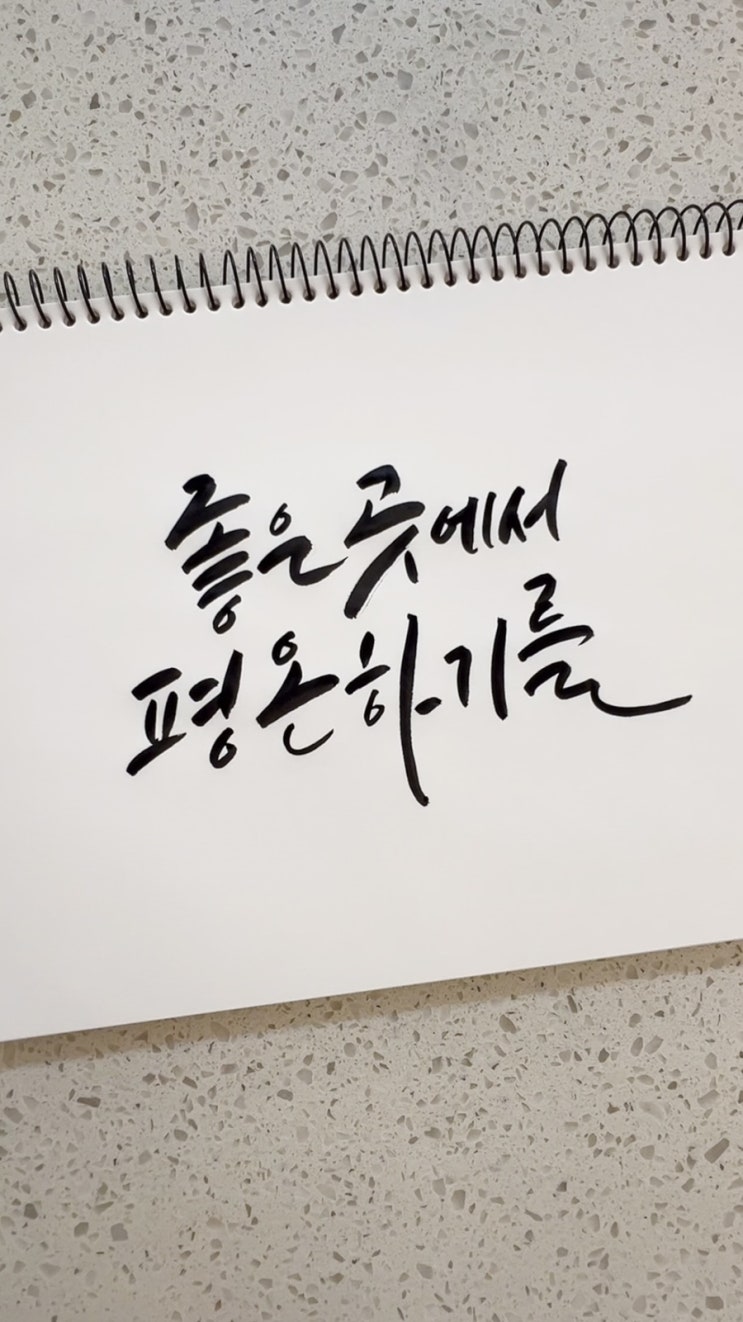 좋은 곳에서
평온하기를